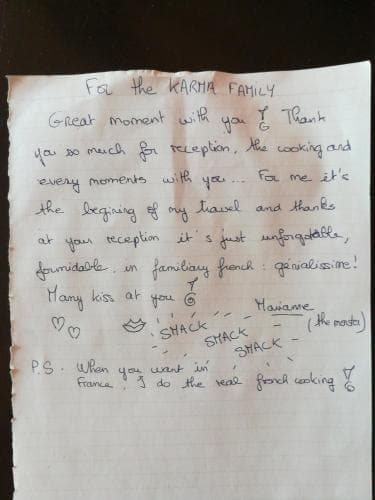 For the KARMA FAMILY
Great moment with you ! Thank
you so much for reception, the cooking and
every moments with you... For me it's
the begining of my travel and thanks
at your reception it's just unforgotable,
formidable. in familiary french : génialissime!
Many kiss at you !
Marianne
(the monster)
SMACK
SMACK
SMACK
P.S. When you want in
France, I do the real french cooking !